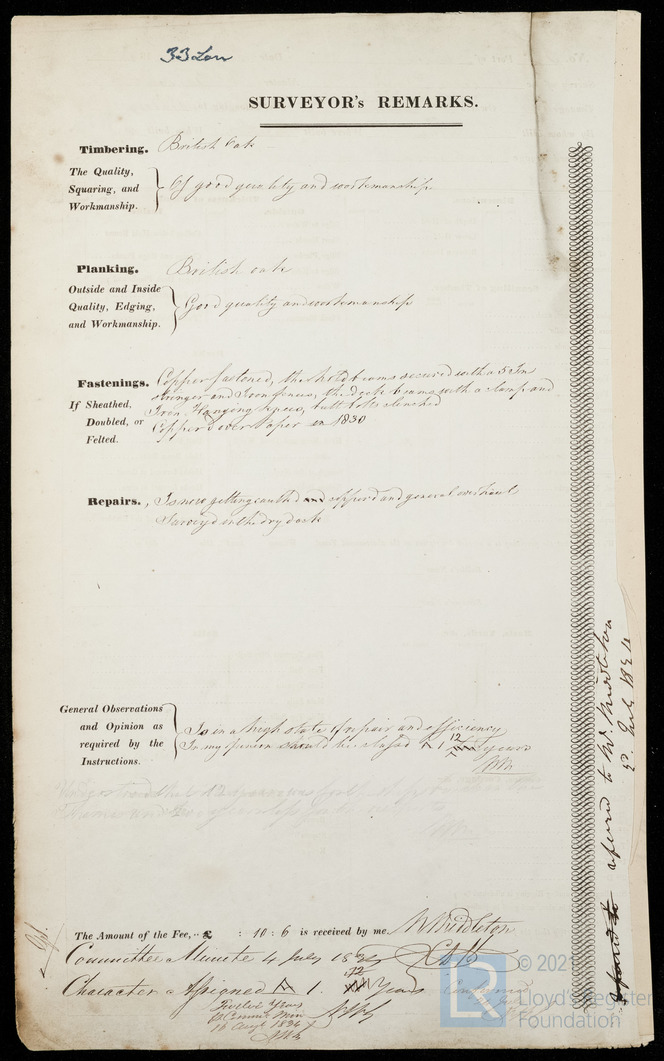 33 Lon
SURVEYOR's REMARKS.
Timbering. British Oak
The Quality,
Squaring, and
Workmanship.
Of good quality and workmanship
Planking. British oak
Outside and Inside
Quality, Edging,
and Workmanship.
Good quality and workmanship
Fastenings. Copper fastened, the hold beams secured with a 5 In
stringer and Iron knees, the deck beams with a clamp and
If Sheathed, Iron Hanging knees, butt bolts clenched
Doubled, or Copper'd over Paper in 1830
Felted.
Repairs. Is now getting caulk'd and copper'd and general overhaul
Survey'd in the dry dock
General Observations
and Opinion as
required by the
Instructions.
Is in a high state of repair and efficiency
In my opinion should be classed A 1 12 years
WM
The Amount of the Fee, £ : 10 : 6 is received by me W Middleton
Committee Minute 4 July 1834
Character Assigned A 1. 12 Years Confirmed
Twelve Years
pr Comee Min
16 Augt 1834
referred to Mr. Middleton
2d July 1834
© 202
LR
Lloyd's Register
Foundation